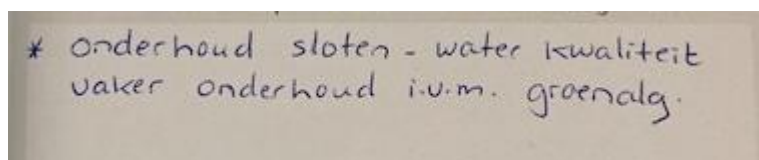 * onderhoud sloten - water kwaliteit
vaker onderhoud i.v.m. groenalg.